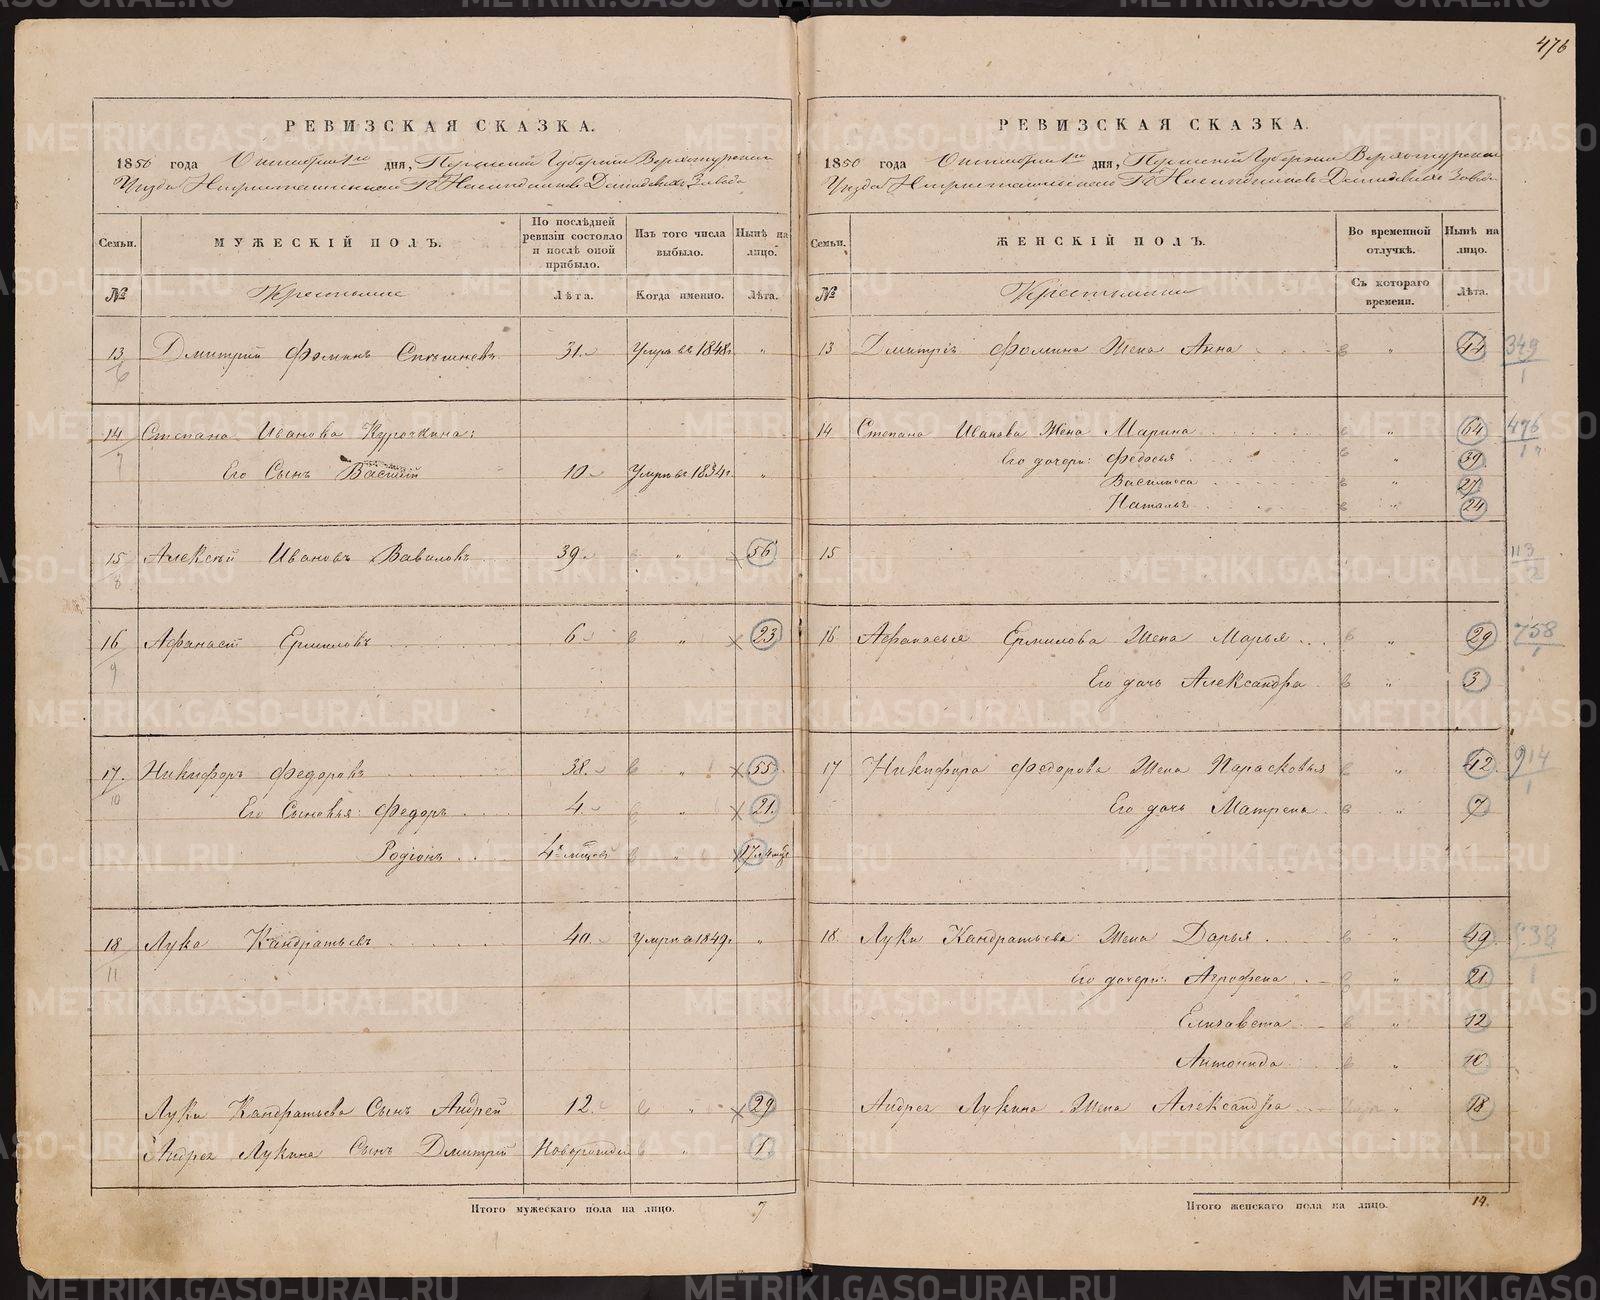 476
РЕВИЗСКАЯ СКАЗКА.
1850 года Октября 1го дня, Пермской Губернии Верхотурскаго
Уезда Гг Наследниковъ Демидовыхъ Завода
Семьи. МУЖЕСКІЙ ПОЛЪ. По послѣдней ревизіи состояло и послѣ оной прибыло. Изъ того числа выбыло. Нынѣ на лицо.
№ Крестьяне Лѣта. Когда именно. Лѣта.
13 Дмитрий Фоминъ 31. Умеръ въ 1848г. „
6
14 Степана Иванова Курочкина:
7 Его Сынъ Василій 10 Умеръ въ 1834г. „
15 Алексѣй Ивановъ Вавиловъ 39. „ 56
8
16 Афанасій Ермиловъ 6 „ 23
9
17. Никифоръ Федоровъ 38. „ 55
10 Его Сыновья: Федоръ 4. „ 21.
Родіонъ 4х мѣсяцъ „ 17
18 Лука Кандратьевъ 40. Умеръ въ 1849г. „
11
Луки Кандратьева Сынъ Андрей 12. „ 29
Андрея Лукина Сынъ Дмитрий Новорожден „ 1.
Итого мужескаго пола на лицо. 7
РЕВИЗСКАЯ СКАЗКА.
1850 года Октября 1го дня, Пермской Губернии Верхотурскаго
Уезда Гг Наследниковъ Демидовыхъ Завода
Семьи. ЖЕНСКІЙ ПОЛЪ. Во временной отлучкѣ. Нынѣ на лицо.
№ Крестьянки Съ котораго времени. Лѣта.
13 Дмитрія Фомина Жена Анна „ 44 349
1
14 Степана Иванова Жена Марина „ 64 476
Его дочери: Федосья „ 39 1
Василиса „ 27
Наталья „ 24
15 113
2
16 Афанасья Ермилова Жена Марья „ 29 758
Его дочь Александра „ 3 1
17 Никифора Федорова Жена Парасковья „ 42 914
Его дочь Матрена „ 7 1
18. Луки Кандратьева Жена Дарья „ 49 538
Его дочери: Агрофена „ 21 1
Елизавета „ 12
Антонида „ 10
Андрея Лукина Жена Александра „ 18
Итого женскаго пола на лицо. 14.
METRIKI.GASO-URAL.RU